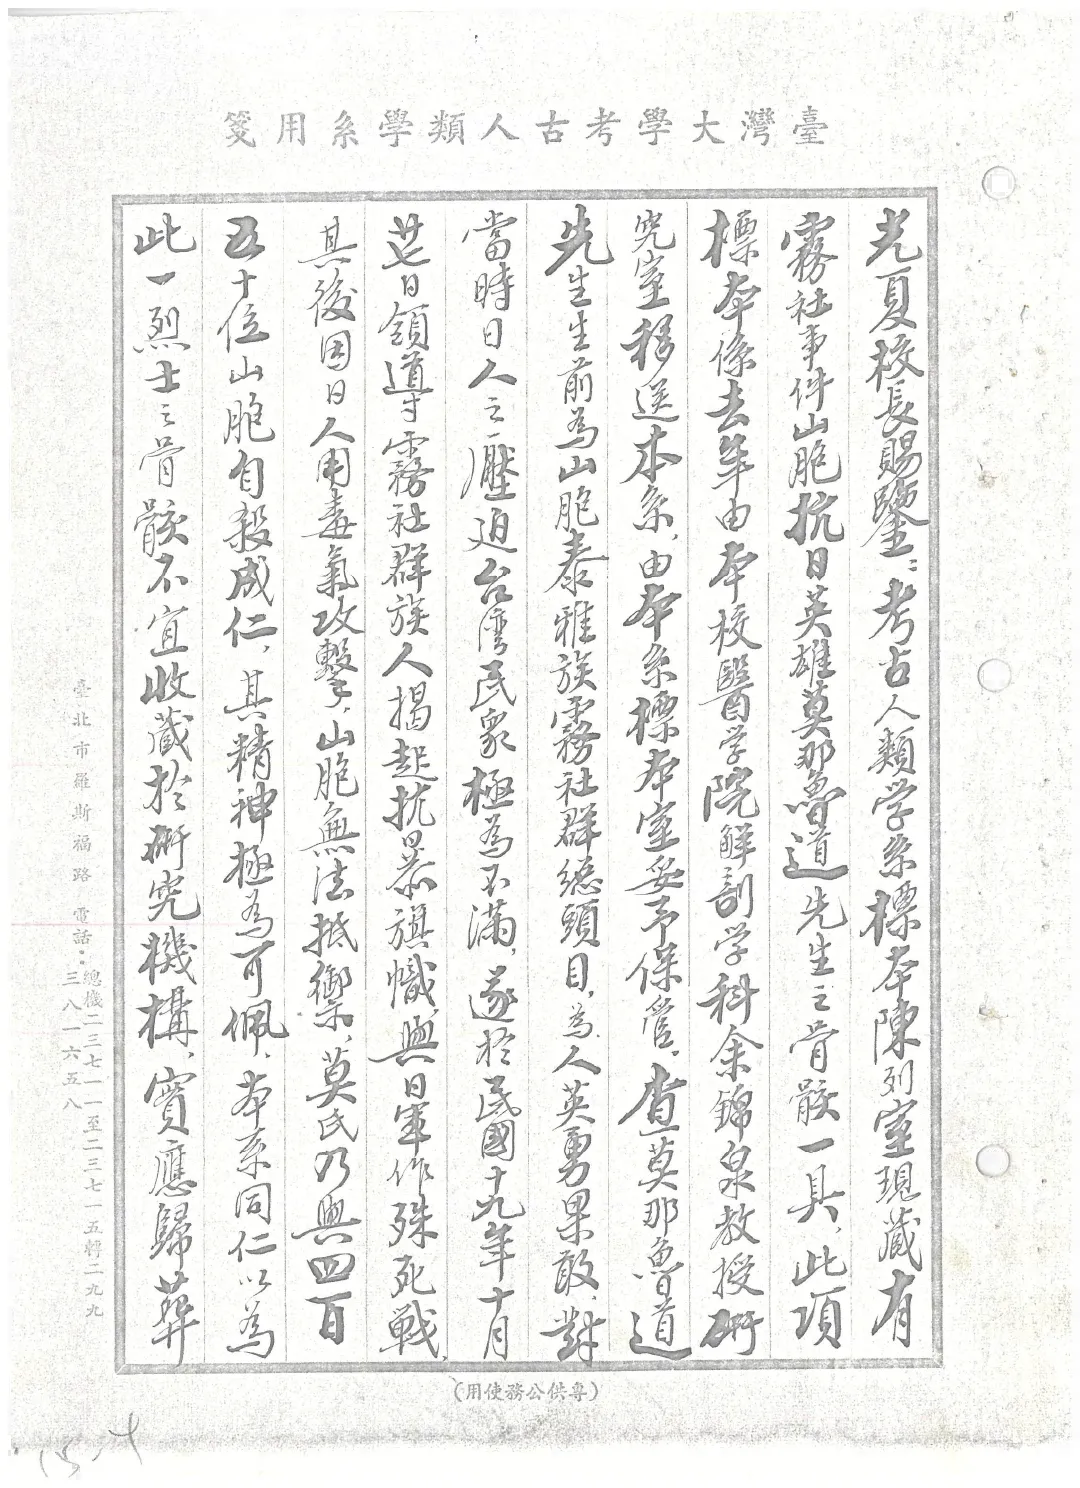 臺灣大學考古人類學系用箋
光夏校長賜鑒：考古人類学系標本陳列室現藏有
霧社事件山胞抗日英雄莫那魯道先生之骨骸一具，此項
標本係去年由本校醫学院解剖学科余錦泉教授研
究室移送本系，由本系標本室妥予保管，查莫那魯道
先生生前為山胞泰雅族霧社群總頭目，為人英勇果敢，對
當時日人之壓迫台湾民眾極為不滿，遂於民國十九年十月
廿七日領導霧社群族人揭起抗暴旗幟，與日軍作殊死戰，
其後因日人用毒氣攻擊，山胞無法抵禦，莫氏乃與四百
五十位山胞自殺成仁，其精神極為可佩，本系同仁以為
此一烈士之骨骸不宜收藏於研究機構，實應歸葬
臺北市羅斯福路 電話：總機二三七一一至二三七一五轉二九九
三八一六五八
（專供公務使用）